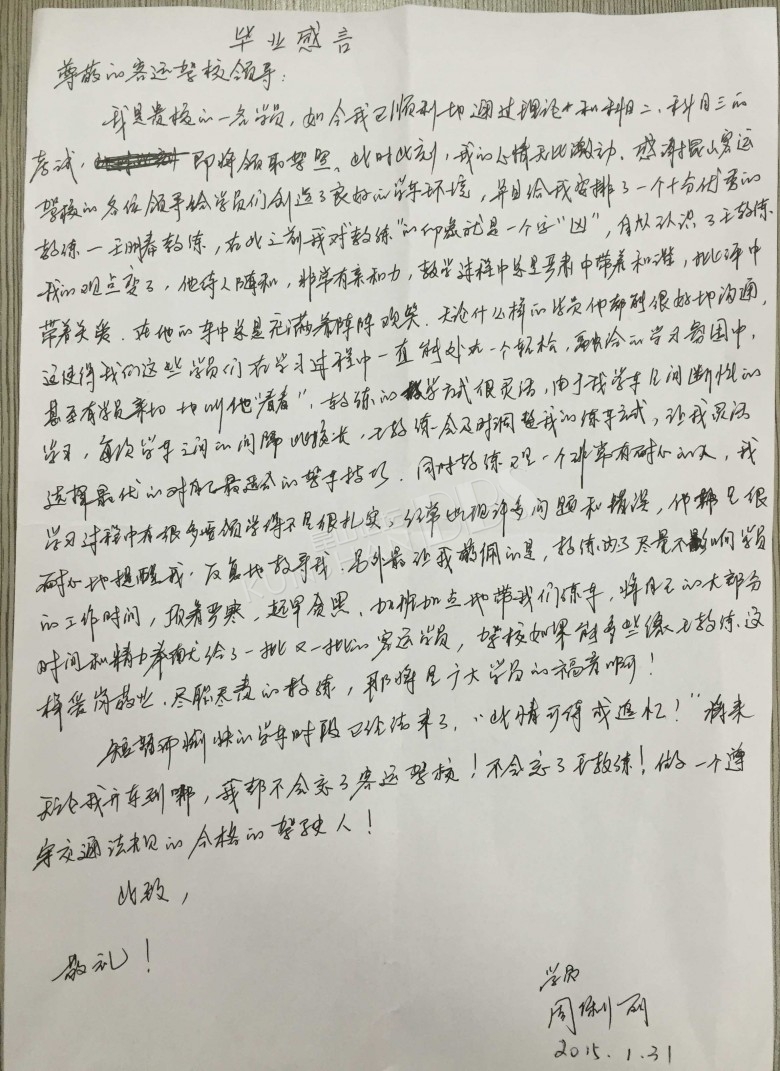 毕业感言
尊敬的客运驾校领导:
我是贵校的一名学员,如今我已顺利地通过理论和科目二、科目三的
考试,即将领取驾照。此时此刻,我的心情无比激动。感谢昆山客运
驾校的各位领导给学员们创造了良好的学车环境,并且给我安排了一个十分优秀的
教练—王鹏春教练,在此之前我对教练"的印象就是一个字"凶",自从认识了王教练
我的观点变了,他待人随和,非常有亲和力,教学过程中总是严肃中带着和谐,批评中
带着关爱.在他的车中总是充满着阵阵欢笑.无论什么样的学员他都能很好地沟通,
这使得我们这些学员们在学习过程中一直能处在一个轻松,融洽的学习氛围中,
甚至有学员亲切地叫他"春春",教练的教学方式很灵活,由于我学车是间断性的
学习,每次学车之间的间隔比较长,王教练会及时调整我的练车方式,让我灵活
选择最优的对自己最适合的驾车技巧.同时教练又是一个非常有耐心的人,我
学习过程中有很多要领学得不是很扎实,经常出现许多问题和错误,他都是很
耐心地提醒我,反复地教导我.另外最让我敬佩的是,教练为了尽量不影响学员
的工作时间,顶着严寒,起早贪黑,加班加点地带我们练车,将自己的大部分
时间和精力奉献给了一批又一批的客运学员,驾校如果能多些像王教练这
样爱岗敬业,尽职尽责的教练,那将是广大学员的福音啊!
短暂而愉快的学车时段已经结束了,"此情可待成追忆!"将来
无论我开车到哪,我都不会忘了客运驾校!不会忘了王教练!做一个遵
守交通法规的合格的驾驶人!
此致,
敬礼!
学员
周俐丽
2015.1.31